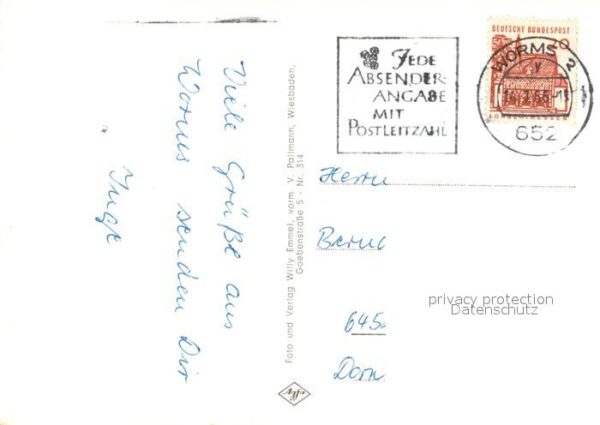 Viele Grüße aus
Worms senden Dir
Inge
Foto und Verlag Willy Emmel, vorm. V. Pollmann, Wiesbaden,
Goebenstraße 5 - Nr. 314
Agfa
JEDE
ABSENDER-
ANGABE
MIT
POSTLEITZAHL
DEUTSCHE BUNDESPOST
WORMS 2
y
652
Herrn
645
privacy protection
Datenschutz